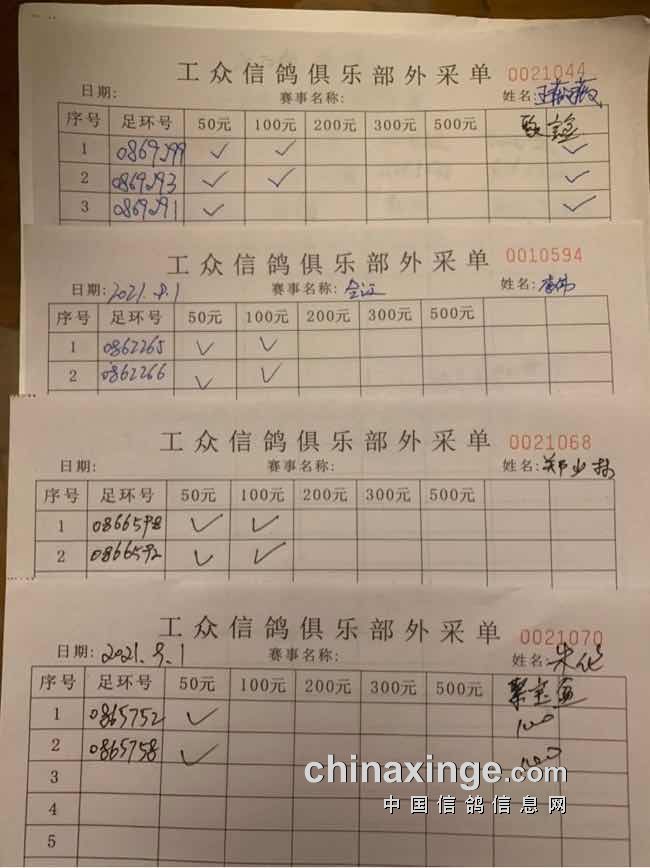 工众信鸽俱乐部外采单 0021044
日期: 赛事名称: 姓名:
序号 足环号 50元 100元 200元 300元 500元
1 0869299 ✓ ✓ ✓
2 0869293 ✓ ✓ ✓
3 0869291 ✓ ✓
工众信鸽俱乐部外采单 0010594
日期: 2021.9.1 赛事名称: 姓名: 李伟
序号 足环号 50元 100元 200元 300元 500元
1 0862265 ✓ ✓
2 0862266 ✓ ✓
工众信鸽俱乐部外采单 0021068
日期: 赛事名称: 姓名: 郑少林
序号 足环号 50元 100元 200元 300元 500元
1 0866598 ✓ ✓
2 0866592 ✓ ✓
工众信鸽俱乐部外采单 0021070
日期: 2021.9.1 赛事名称: 姓名: 朱化
序号 足环号 50元 100元 200元 300元 500元 聚宝盆
1 0865752 ✓ 100
2 0865758 ✓ 100
3
4
5
chinaxinge.com
中国信鸽信息网